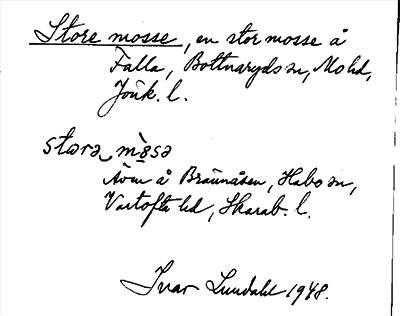 Store mosse, en stor mosse å
Falla, Bottnaryds sn, Mo hd,
Jönk. l.
storə mo̠̍sə
Även å Braunåsen, Habo sn,
Vartofta hd, Skarab. l.
Ivar Lundahl 1948.